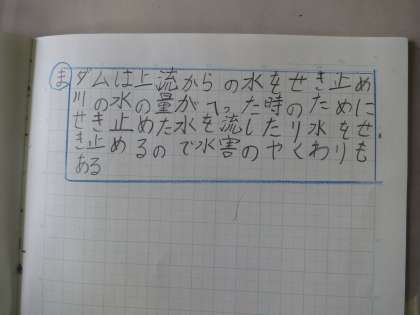 ま ダムは上流からの水をせき止め
川の水の量がへった時のために
せき止めた水を流したり水をせ
き止めるので水害のやくわりも
ある